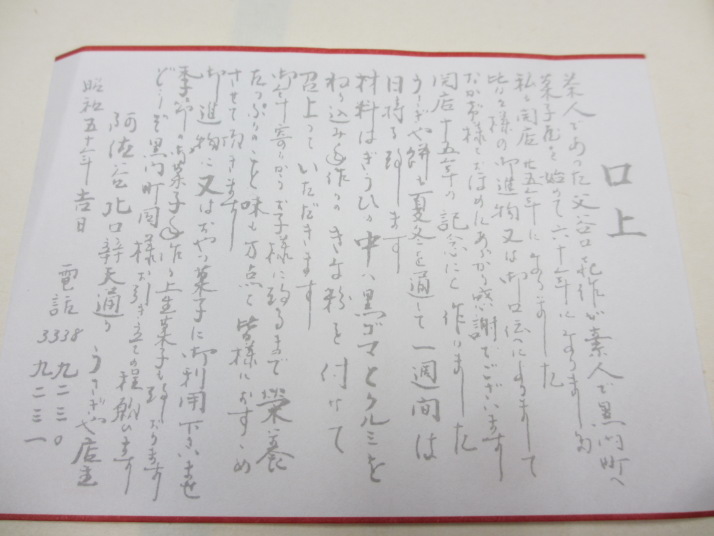 口上
茶人であった父谷口喜作が素人で黒門町へ
菓子屋を始めて六十年になりました
私も開店廿五年になりました
皆々様の御進物又は御口伝へによりまして
なかお客様におほめにあづかり感謝でございます
開店十五年の記念にて作りました
うさぎや餅も夏冬を通して一週間は
日持ち致します
材料はぎうひの中へ黒ゴマとクルミを
ねり込み手作りのきな粉を付けて
召上っていただきます
御年寄りからお子様に致るまで栄養
たっぷりのこと味も万点で皆様におすゝめ
させて頂きます
御進物に又はおやつ菓子に御利用下さいませ
季節のお菓子手作り上生菓子も致しおります
どうぞ黒門町同様お引き立ての程願います
昭和五十年吉日
阿佐谷北口弁天通り
うさぎや店主
電話 338 九二三〇
339 九二三一